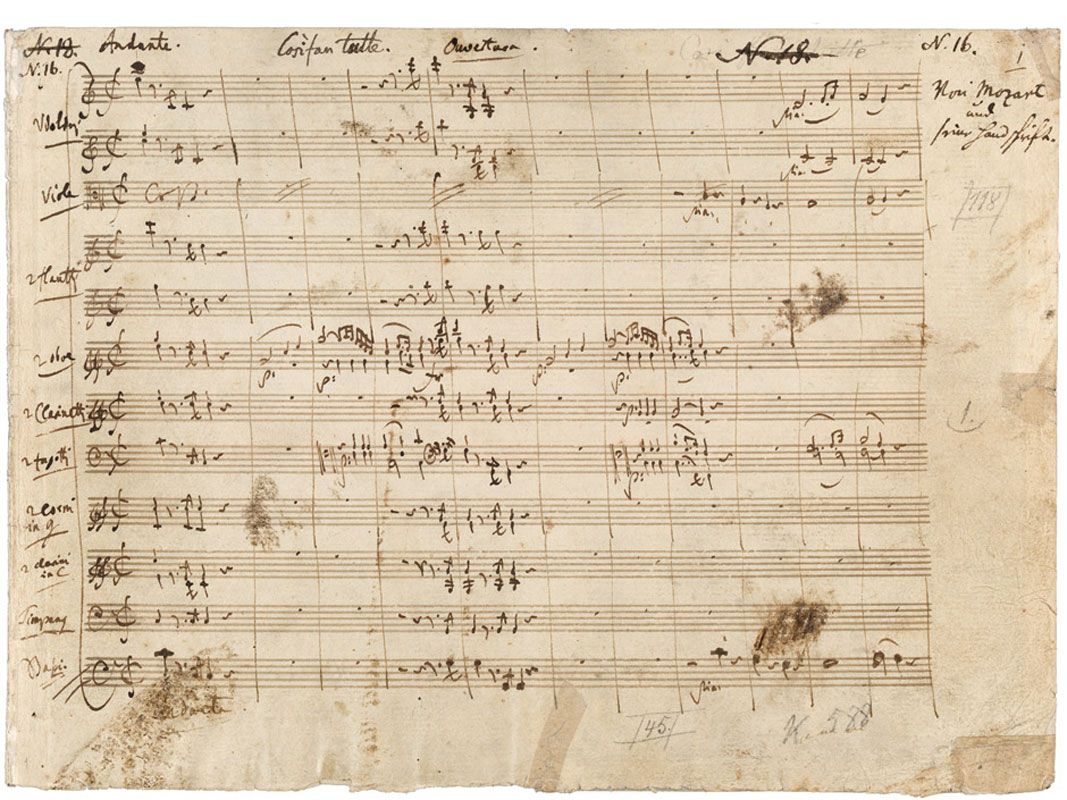 N. 18. Andante. Così fan tutte. Ouvertura. N. 18. N. 16. 1
N. 16.
Von Mozart
und
seine Handschrift.
Violini
Viole
Col B.
118
2 flauti
2 oboe
p: p: fp p: p:
2 Clarinetti
1.
2 fagotti
2 Corni
in g
2 clarini
in C
Timpany
Bassi.
Andante
45.
K. 588